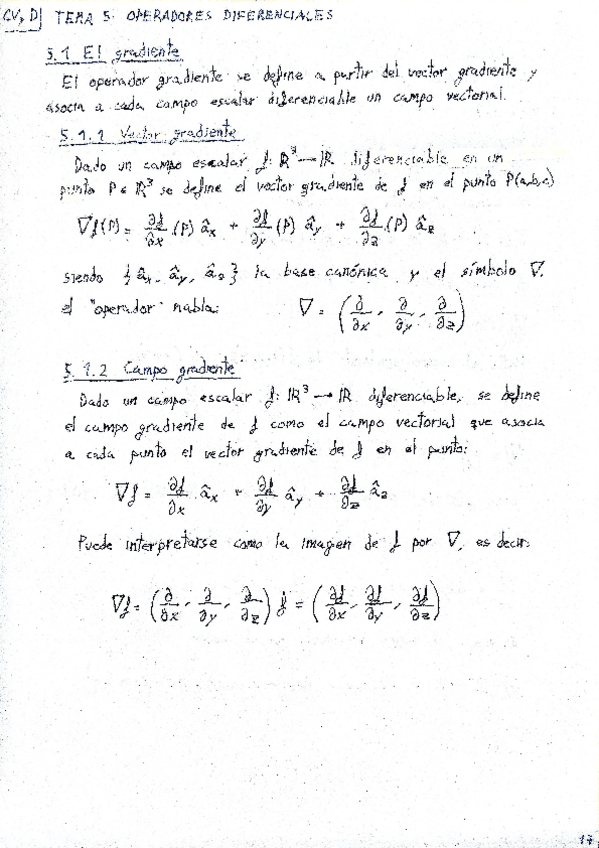 [CV, D] TEMA 5: OPERADORES DIFERENCIALES
5.1 El gradiente
El operador gradiente se define a partir del vector gradiente y
asocia a cada campo escalar diferenciable un campo vectorial.
5.1.1 Vector gradiente
Dado un campo escalar f: ℝ³ → ℝ diferenciable en un
punto P ∈ ℝ³ se define el vector gradiente de f en el punto P(a,b,c)
∇f(P) = ∂f/∂x (P) âx + ∂f/∂y (P) ây + ∂f/∂z (P) âz
siendo {âx, ây, âz} la base canónica y el símbolo ∇,
el "operador" nabla: ∇ = (∂/∂x, ∂/∂y, ∂/∂z)
5.1.2 Campo gradiente
Dado un campo escalar f: ℝ³ → ℝ diferenciable, se define
el campo gradiente de f como el campo vectorial que asocia
a cada punto el vector gradiente de f en el punto:
∇f = ∂f/∂x âx + ∂f/∂y ây + ∂f/∂z âz
Puede interpretarse como la imagen de f por ∇, es decir:
∇f = (∂/∂x, ∂/∂y, ∂/∂z) f = (∂f/∂x, ∂f/∂y, ∂f/∂z)
17